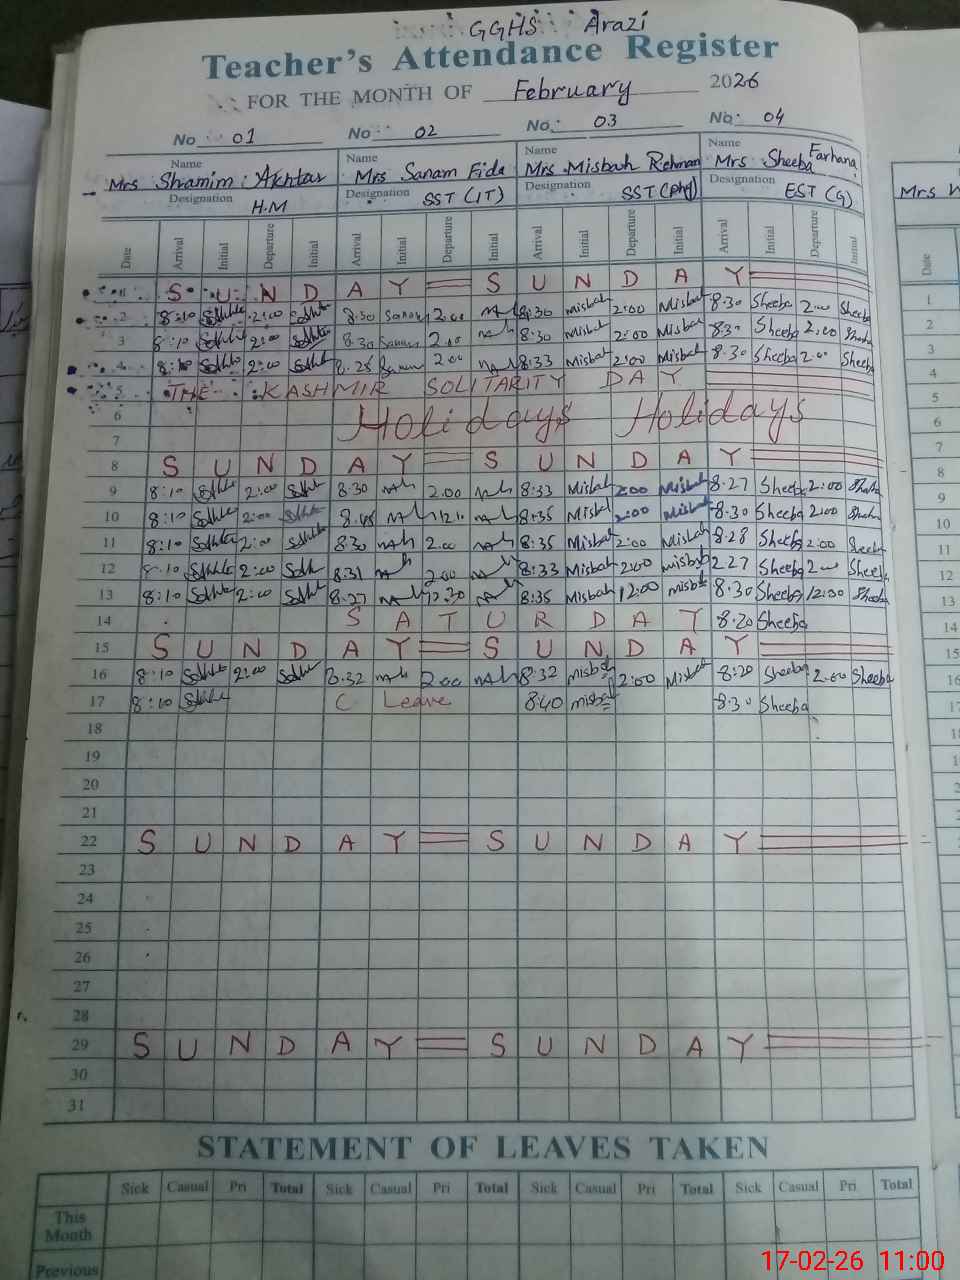 GGHS Arazi
Teacher's Attendance Register
FOR THE MONTH OF February 2026
No 01 No 02 No. 03 No. 04
Name Name Name Name
Mrs Shamim Akhtar Mrs Sanam Fida Mrs Misbah Rehman Mrs Sheeba Farhana
Designation Designation Designation Designation
H.M SST (IT) SST (Phy) EST (G)
Date Arrival Initial Departure Initial Arrival Initial Departure Initial Arrival Initial Departure Initial Arrival Initial Departure Initial
1 SUNDAY SUNDAY
2 8:10 2:00 8.30 Sanam 2.00 8:30 Misbah 2:00 Misbah 8.30 Sheeba 2.00 Sheeba
3 8:10 2:00 8.30 Sanam 2.00 8:30 Misbah 2:00 Misbah 8.30 Sheeba 2.00 Sheeba
4 8:10 2:00 8.28 Sanam 2.00 8:33 Misbah 2:00 Misbah 8.30 Sheeba 2.00 Sheeba
5 THE KASHMIR SOLITARITY DAY
6 Holidays Holidays
7
8 SUNDAY SUNDAY
9 8:10 2:00 8.30 2.00 8:33 Misbah 2:00 Misbah 8.27 Sheeba 2:00 Sheeba
10 8:10 2:00 8.45 8:35 Misbah 2:00 Misbah 8.30 Sheeba 2:00 Sheeba
11 8:10 2:00 8.30 2.00 8:35 Misbah 2:00 Misbah 8.28 Sheeba 2:00 Sheeba
12 8:10 2:00 8.31 2.00 8:33 Misbah 2:00 misbah 2.27 Sheeba 2.00 Sheeba
13 8:10 2:00 8.27 12.30 8:35 Misbah 12:00 misbah 8.30 Sheeba 12:00 Sheeba
14 SATURDAY 8.20 Sheeba
15 SUNDAY SUNDAY
16 8:10 2:00 8.32 2.00 8:32 misbah 2:00 Misbah 8:20 Sheeba 2.00 Sheeba
17 8:10 C Leave 8:40 misbah 8.30 Sheeba
18
19
20
21
22 SUNDAY SUNDAY
23
24
25
26
27
28
29 SUNDAY SUNDAY
30
31
STATEMENT OF LEAVES TAKEN
Sick Casual Pri Total Sick Casual Pri Total Sick Casual Pri Total Sick Casual Pri Total
This Month
Previous
Mrs
Date
1
2
3
4
5
6
7
8
9
10
11
12
13
14
15
16
17-02-26 11:00